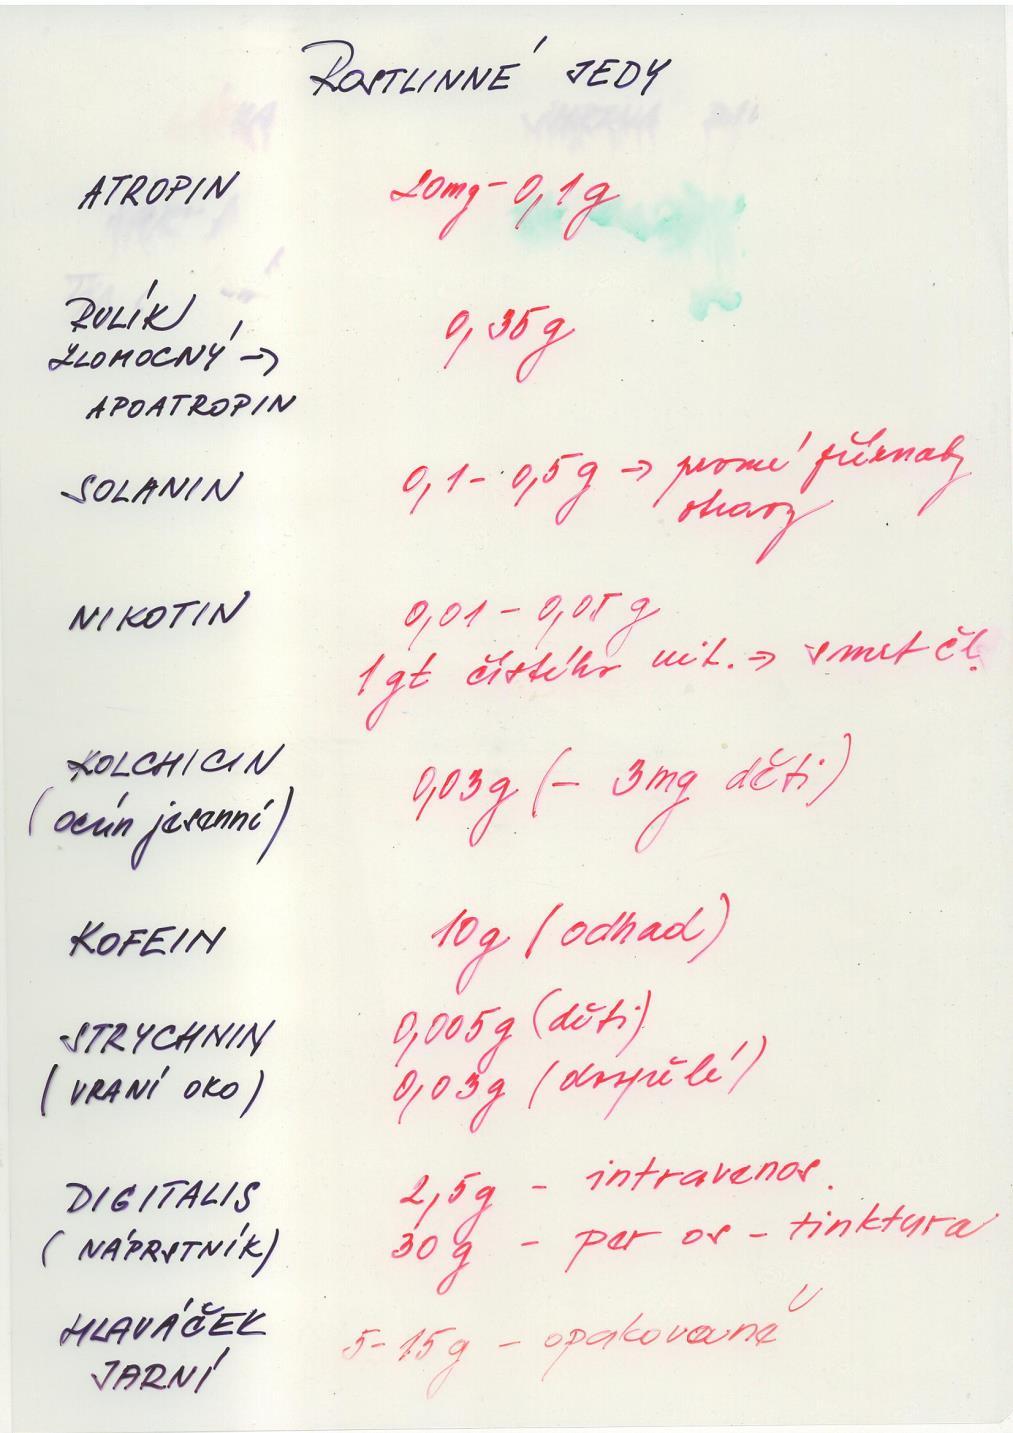 ROSTLINNÉ JEDY
ATROPIN 20mg - 0,1g
RULÍK
ZLOMOCNÝ → 0,35g
APOATROPIN
SOLANIN 0,1 - 0,5g → první příznaky
otravy
NIKOTIN 0,01 - 0,05g
1 gt čistého nik. → smrt čl.
KOLCHICIN
(ocún jesenní) 0,03g (- 3mg děti)
KOFEIN 10g (odhad)
STRYCHNIN 0,005g (děti)
(VRANÍ OKO) 0,03g (dospělé)
DIGITALIS 2,5g - intravenos.
(NÁPRSTNÍK) 30g - per os - tinktura
HLAVÁČEK 5-15g - opakovaně
JARNÍ